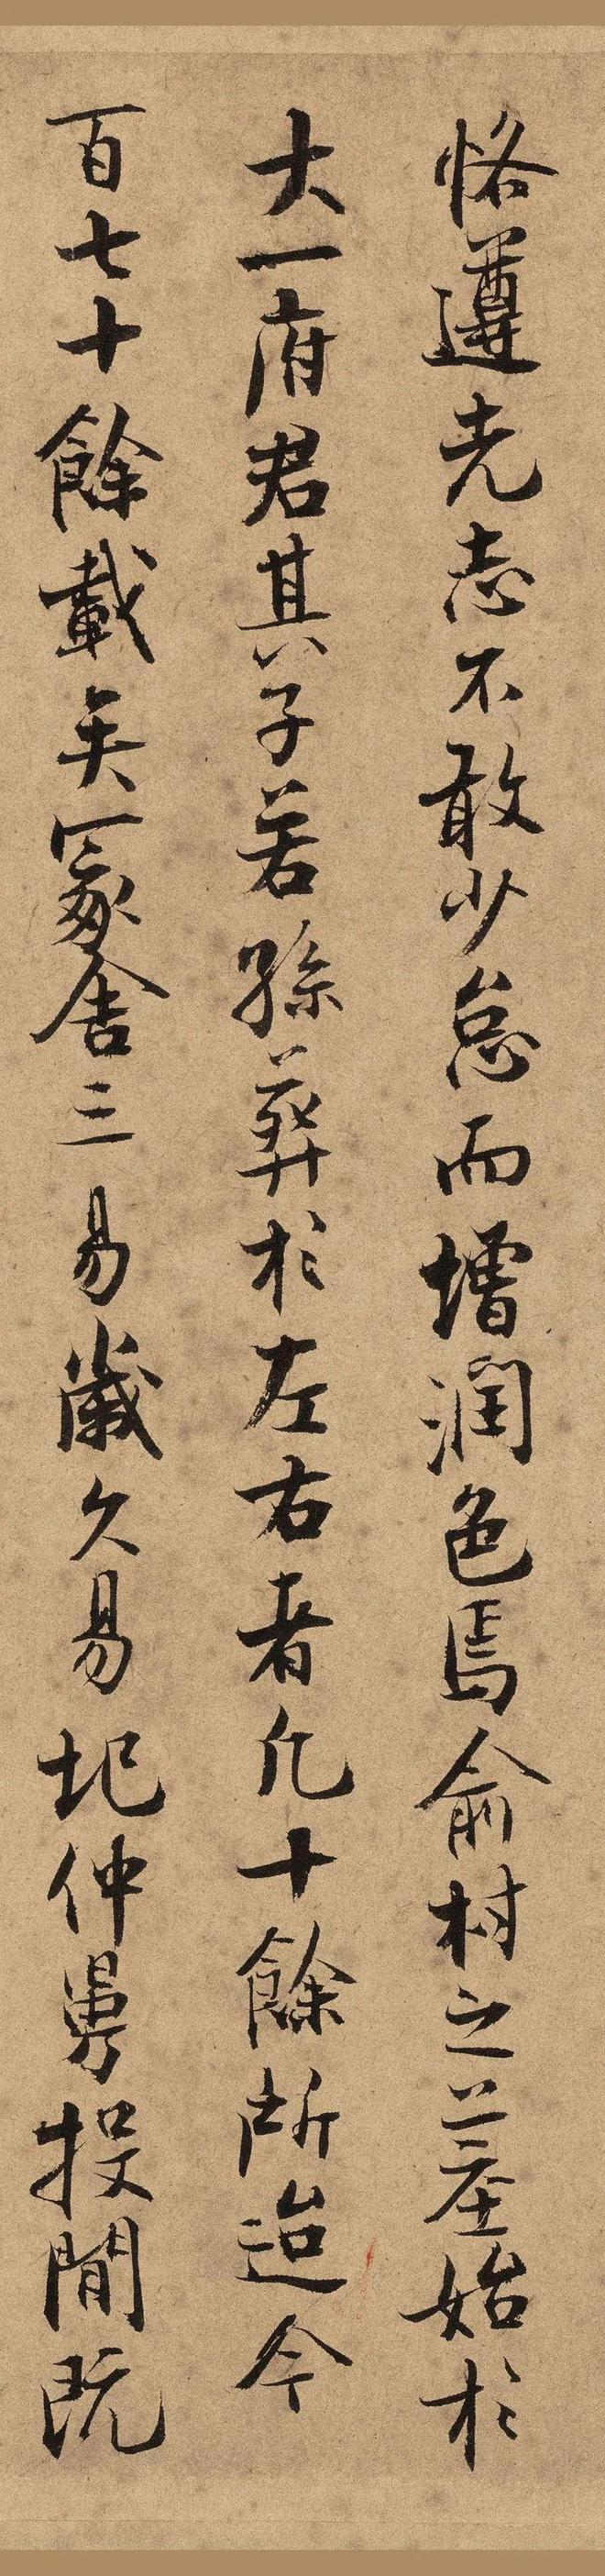 恪遵先志不敢少怠而增潤色焉俞村之墓始於
大一府君其子若孫葬於左右者凡十餘所迨今
百七十餘載矣冢舍三易歲久易圮仲舅投閒既